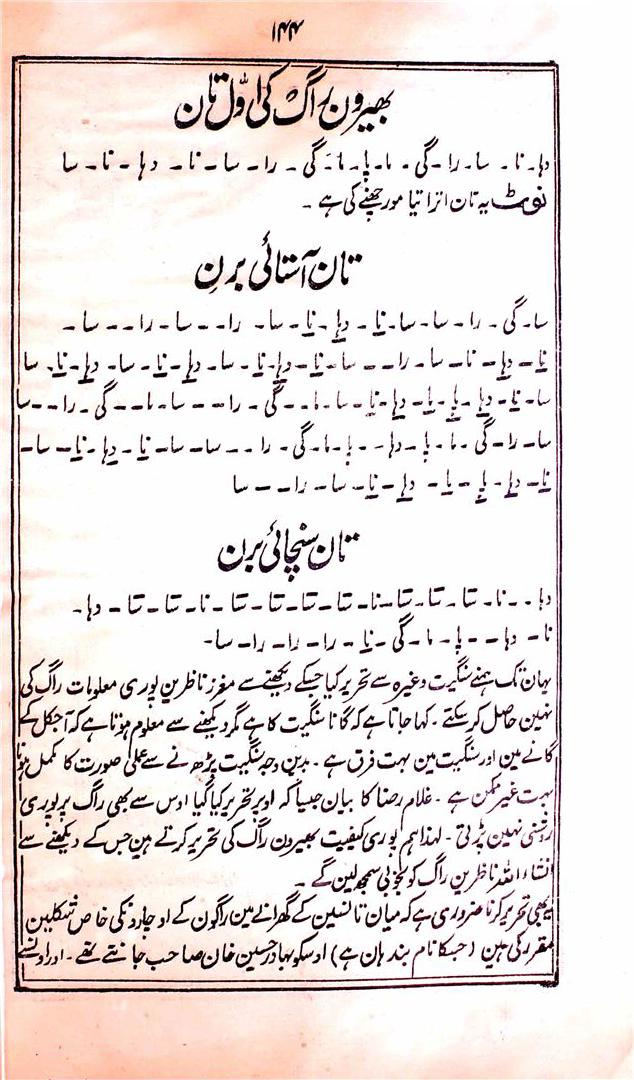 ۱۴۴
بھیرون راگ کی اوّل تان
دہا۔ نا۔ سا۔ را۔ گی۔ ما۔ پا۔ ما۔ گی۔ را۔ سا۔ نا۔ دہا۔ نا۔ سا
نوٹ یہ تان اترا تیا مورچھنے کی ہے ۔
تان آستائی برن
سا۔ گی۔ را۔ سا۔ سا۔ نا۔ دہا۔ نا۔ سا۔ را۔۔ سا۔ را۔۔ سا۔
نا۔ دہا۔ نا۔ سا۔ را۔۔ سا۔ نا۔ دہا۔ نا۔ سا۔ دہا۔ نا۔ سا۔ دہا۔ نا۔ سا
سا۔ نا۔ دہا۔ پا۔ ما۔ دہا۔ نا۔ سا۔ ما۔۔ گی۔ را۔۔ سا۔ ما۔۔ گی۔ را۔۔ سا
سا۔ را۔ گی۔ ما۔ پا۔ دہا۔۔ پا۔ ما۔ گی۔ را۔۔ سا۔ سا۔ نا۔ دہا۔ نا۔ سا۔
نا۔ دہا۔ پا۔ ما۔ دہا۔ نا۔ سا۔ را۔۔ سا
تان سنچائی برن
دہا۔۔ نا۔ سا۔ سا۔ سا۔ نا۔ سا۔ سا۔ سا۔ سا۔ نا۔ سا۔ سا۔ دہا۔
نا۔ دہا۔۔ پا۔ ما۔ گی۔ نا۔ را۔ را۔ را۔ سا۔
یہان تک ہمنے سنگیت وغیرہ سے تحریر کیا جسکے دیکھنے سے معزز ناظرین پوری معلومات راگ کی
نہین حاصل کر سکتے ۔ کہا جاتا ہے کہ گانا سنگیت کا ہے مگر دیکھنے سے معلوم ہوتا ہے کہ آجکل کے
گانے مین اور سنگیت مین بہت فرق ہے ۔ بدین وجہ سنگیت پڑھنے سے عملی صورت کا مکمل ہونا
بہت غیر ممکن ہے ۔ غلام رضا کا بیان جیسا کہ اوپر تحریر کیا گیا اوس سے بھی راگ پر پوری
روشنی نہین پڑتی ۔ لہذا ہم پوری کیفیت بھیرون راگ کی تحریر کرتے ہین جس کے دیکھنے سے
انشاء اللہ ناظرین راگ کو بخوبی سمجھ لین گے ۔
یہ بھی تحریر کرنا ضروری ہے کہ میان تانسین کے گھرانے مین راگون کے اوجارونکی خاص شکلین
مقرر کی ہین (جسکا نام بندہان ہے) اوسکو بہادر حسین خان صاحب جانتے تھے ۔ اور اونسے